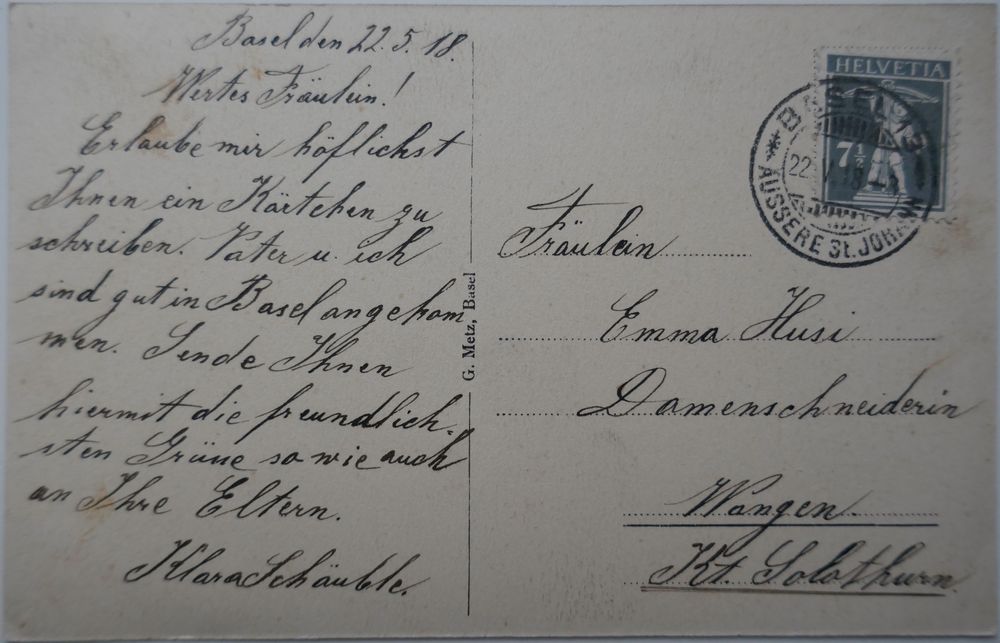 Basel den 22.5.18.
Wertes Fräulein!
Erlaube mir höflichst
Ihnen ein Kärtchen zu
schreiben. Vater u. ich
sind gut in Basel angekom
men. Sende Ihnen
hiermit die freundlich-
sten Grüue so wie auch
an Ihre Eltern.
Klara Schäuble.
G. Metz, Basel
HELVETIA
7½
BASEL 13
22. V. 18
* AUSSERE St. JOHANN
Fräulein
Emma Husi
Damenschneiderin
Wangen.
Kt. Solothurn.